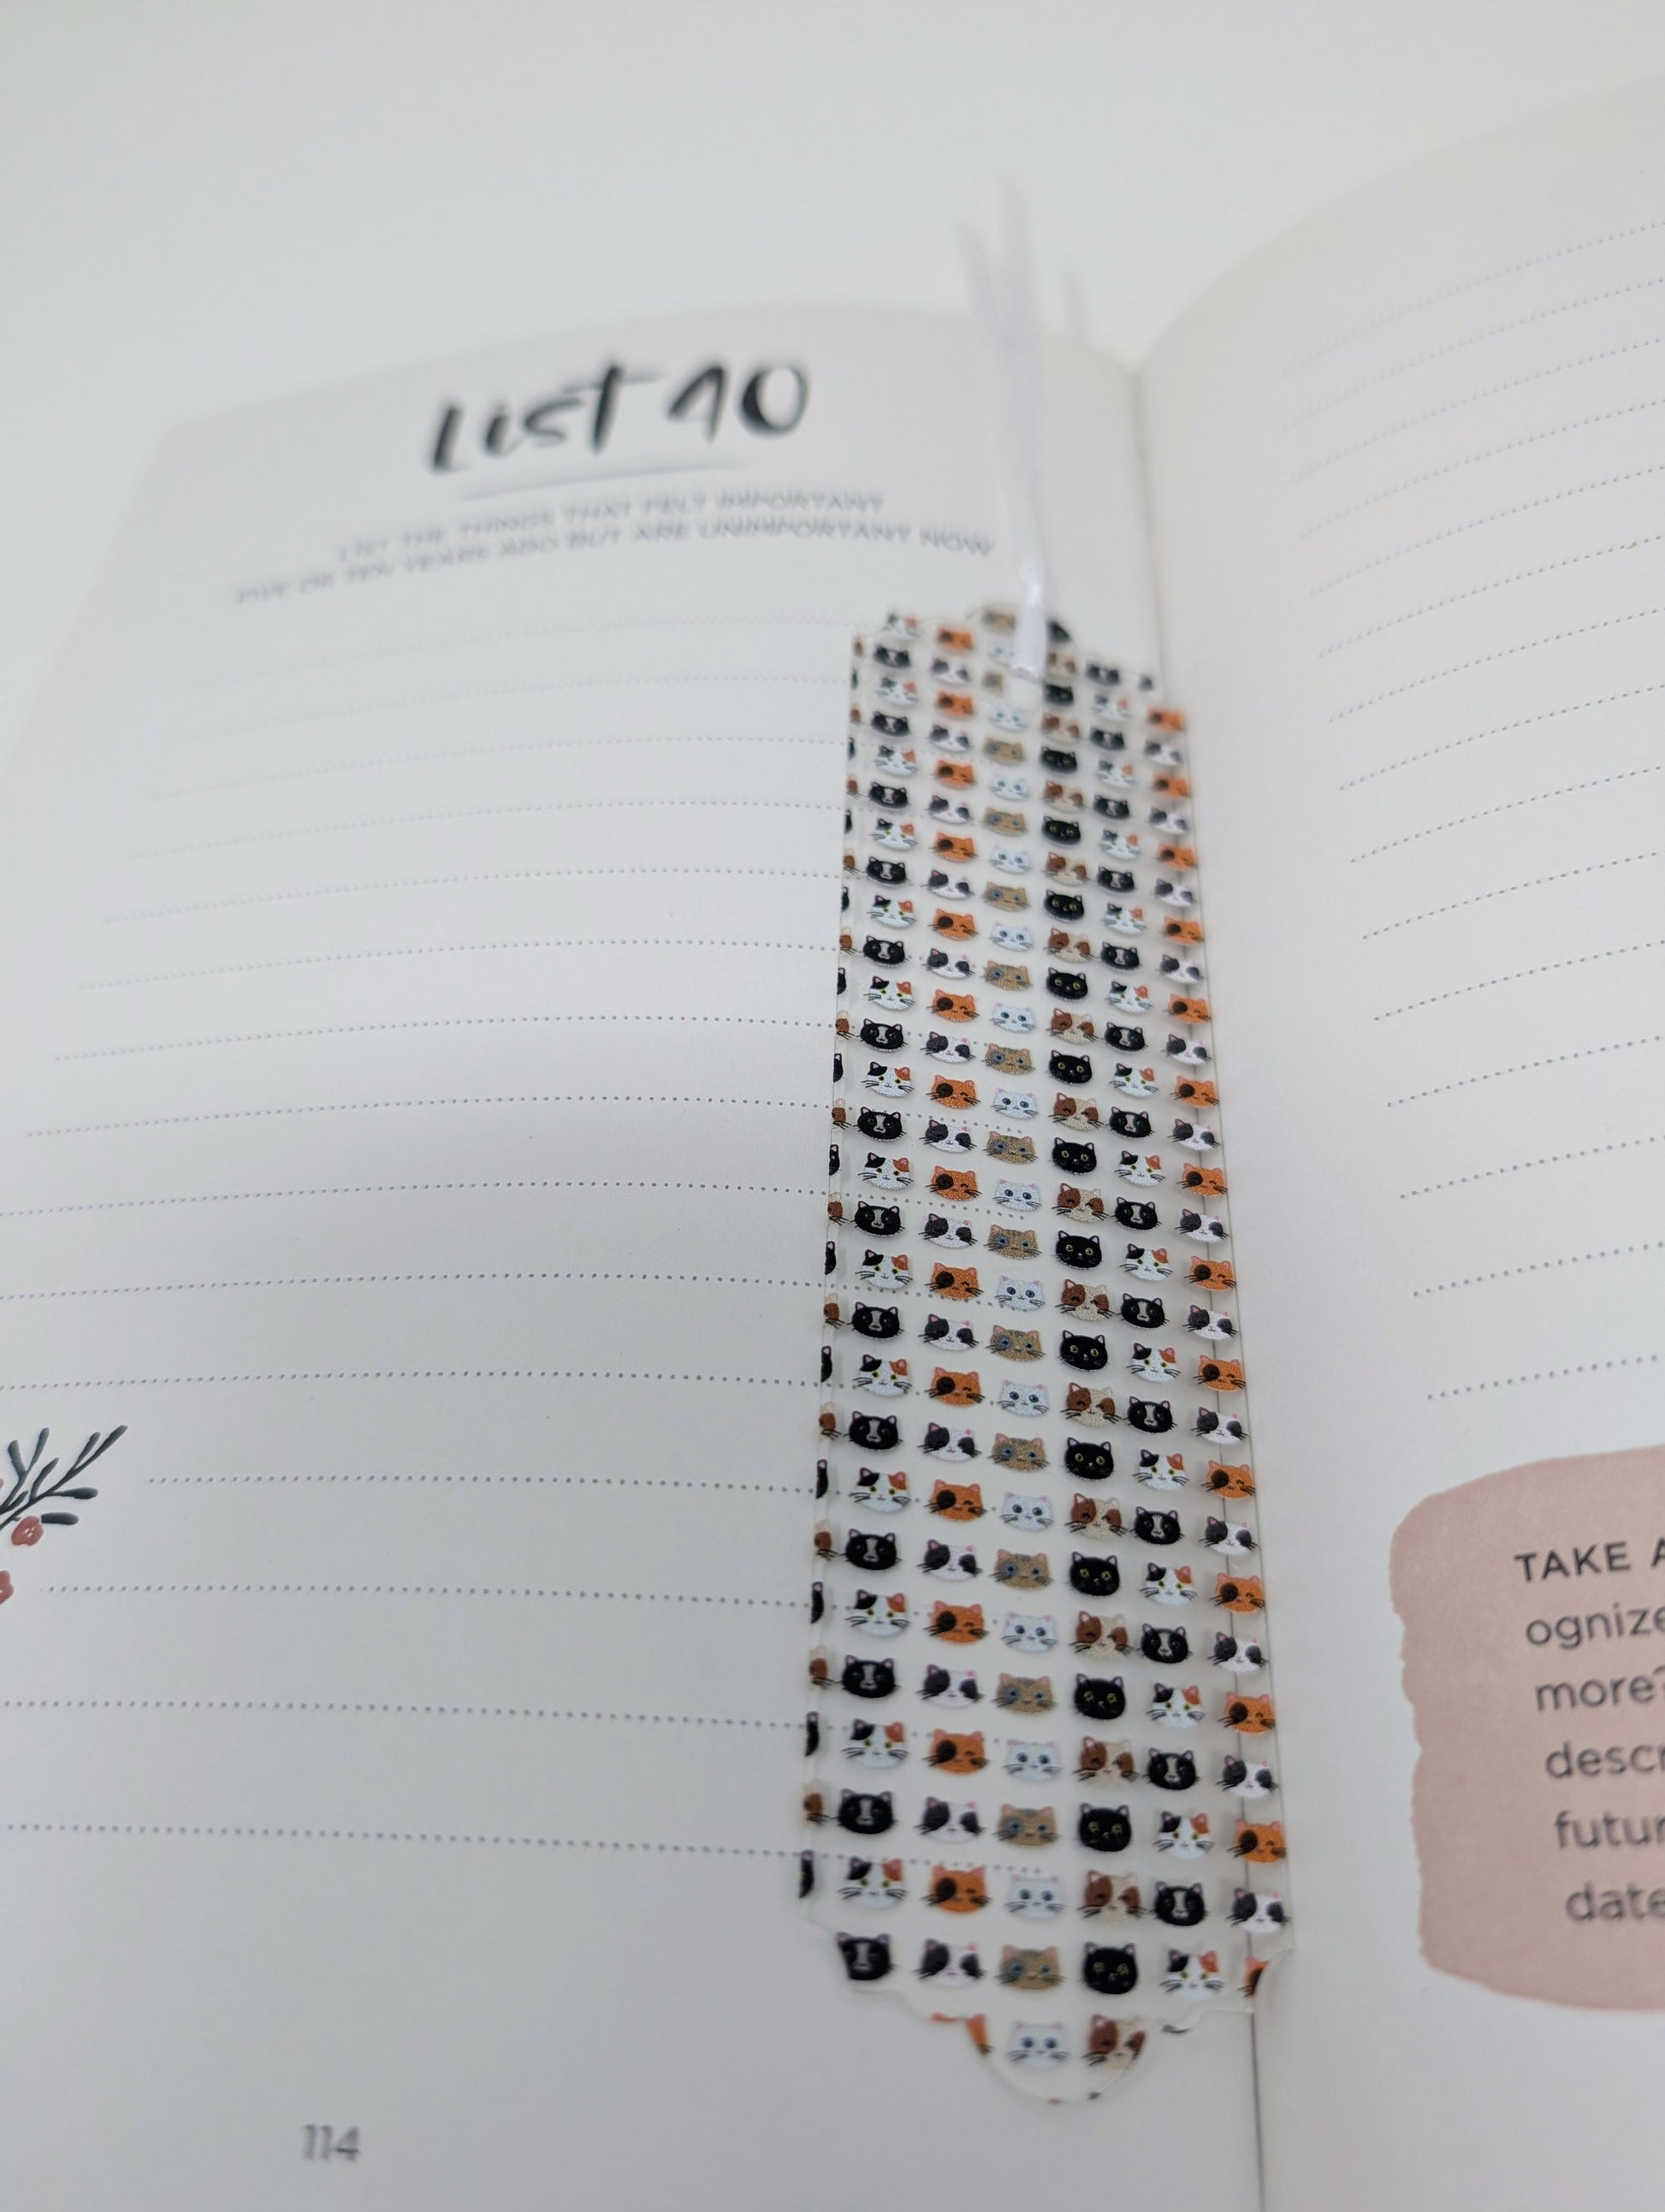 List 40
LIST THE THINGS THAT FELT IMPORTANT
FIVE OR TEN YEARS AGO BUT ARE UNIMPORTANT NOW
114
TAKE A
ognize
more?
descr
futur
date